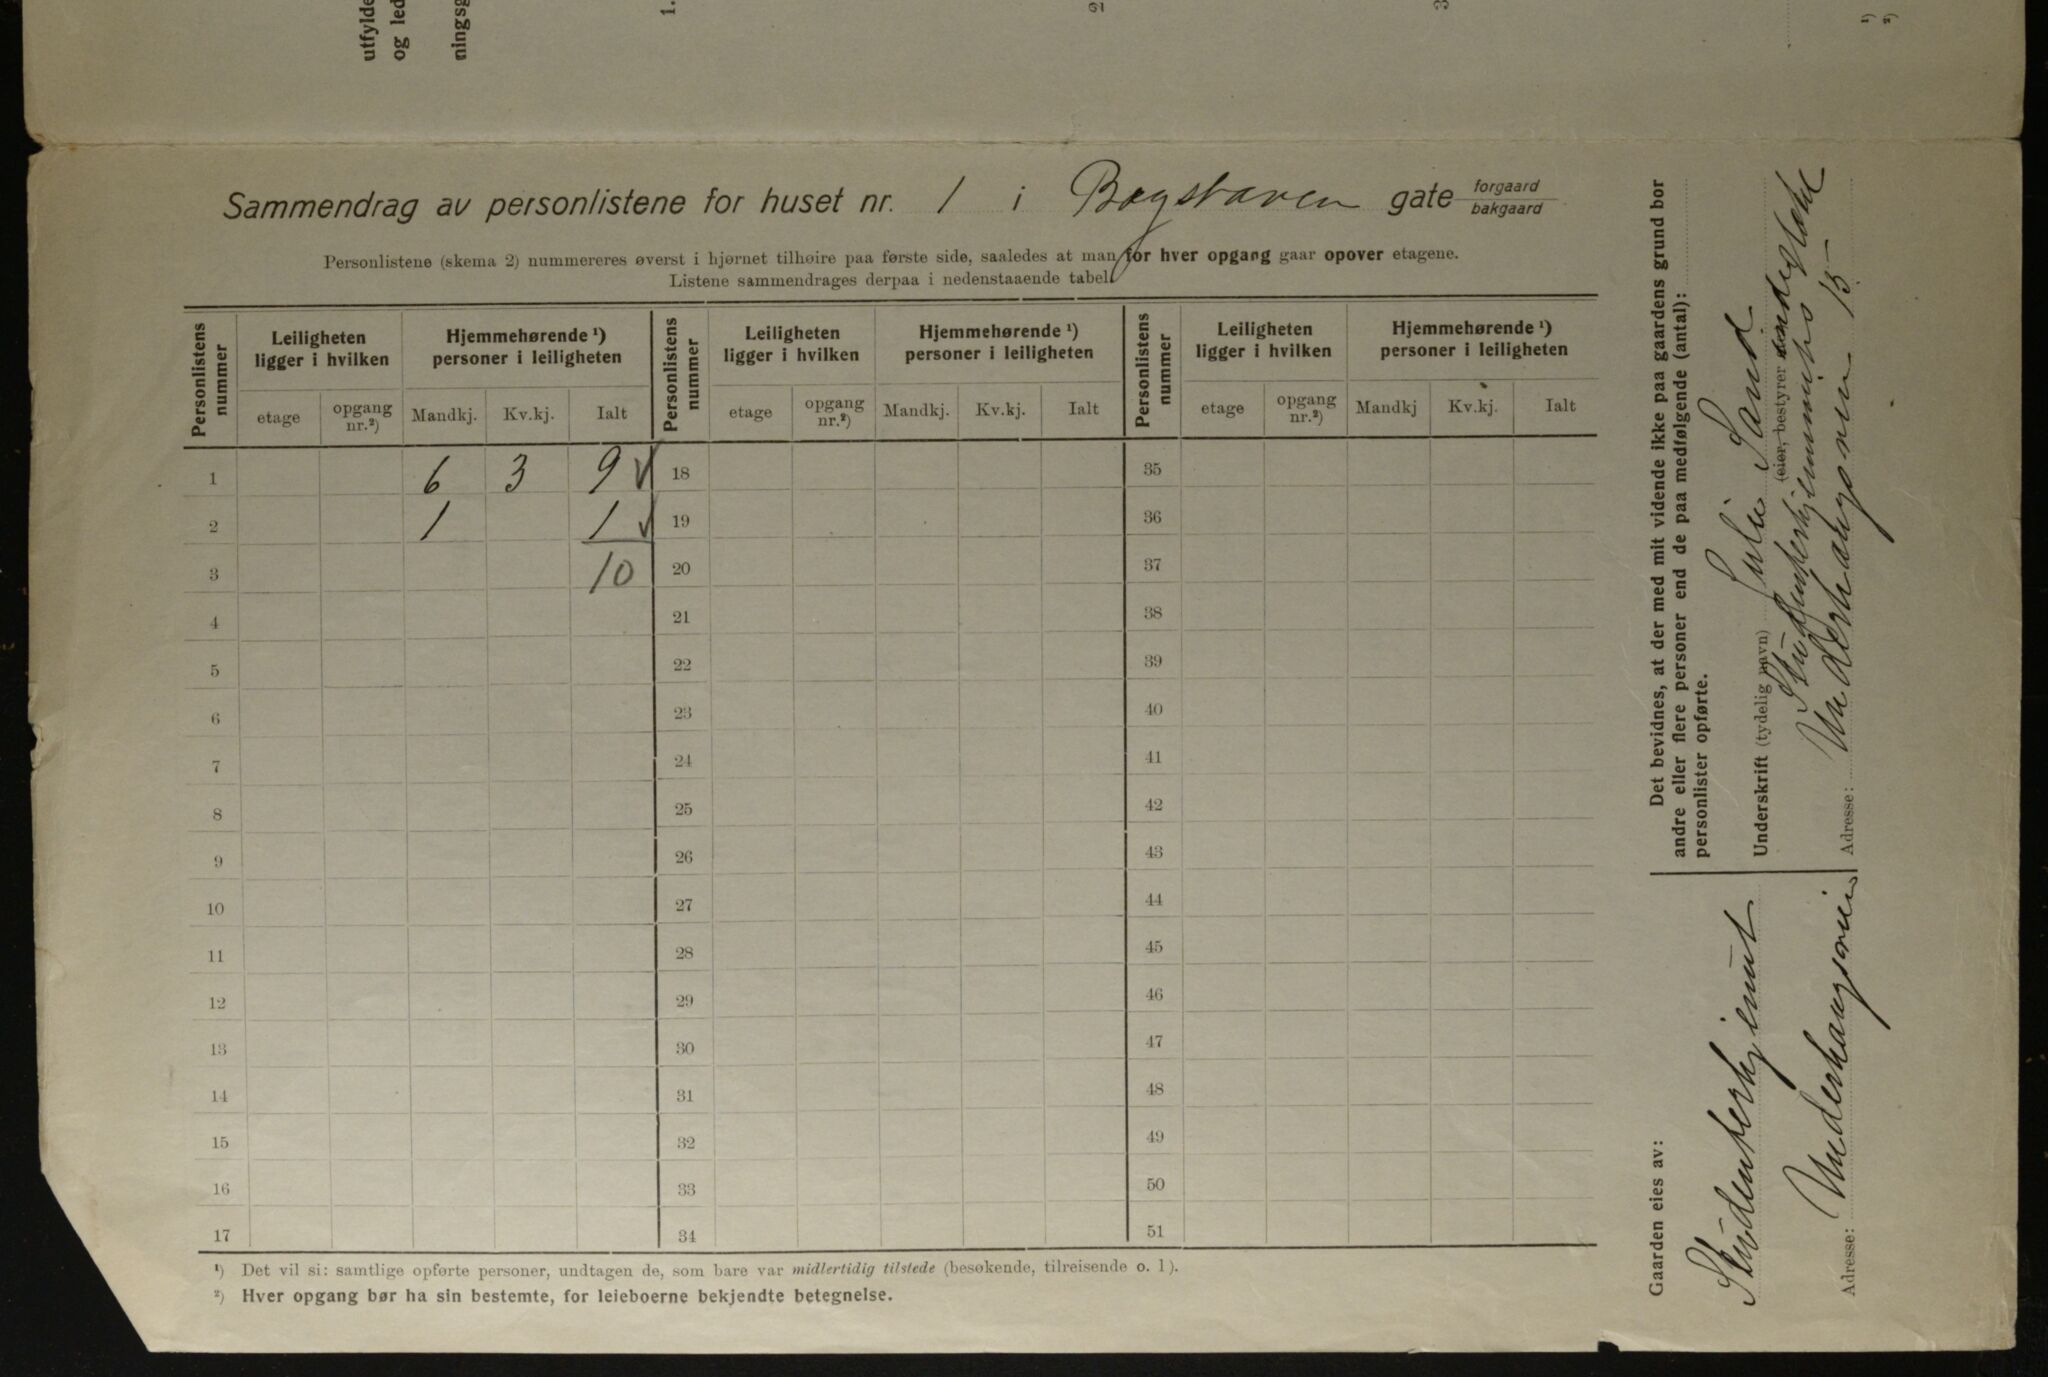 utfylde
og led
ningsg
1.
2
3
¹)
²)
Sammendrag av personlistene for huset nr. 1 i Bogstaveien gate forgaard
bakgaard
Personlistene (skema 2) nummereres øverst i hjørnet tilhøire paa første side, saaledes at man for hver opgang gaar opover etagene.
Listene sammendrages derpaa i nedenstaaende tabel.
Personlistens nummer | Leiligheten ligger i hvilken | Hjemmehørende ¹) personer i leiligheten | Personlistens nummer | Leiligheten ligger i hvilken | Hjemmehørende ¹) personer i leiligheten | Personlistens nummer | Leiligheten ligger i hvilken | Hjemmehørende ¹) personer i leiligheten
etage | opgang nr.²) | Mandkj. | Kv.kj. | Ialt | etage | opgang nr.²) | Mandkj. | Kv.kj. | Ialt | etage | opgang nr.²) | Mandkj | Kv.kj. | Ialt
1 6 3 9 ✓ 18 35
2 1 1 ✓ 19 36
3 10 20 37
4 21 38
5 22 39
6 23 40
7 24 41
8 25 42
9 26 43
10 27 44
11 28 45
12 29 46
13 30 47
14 31 48
15 32 49
16 33 50
17 34 51
¹) Det vil si: samtlige opførte personer, undtagen de, som bare var midlertidig tilstede (besøkende, tilreisende o. l).
²) Hver opgang bør ha sin bestemte, for leieboerne bekjendte betegnelse.
Gaarden eies av:
Studenterhjemmet
Adresse: Underhaugsveien
Det bevidnes, at der med mit vidende ikke paa gaardens grund bor
andre eller flere personer end de paa medfølgende (antal):
personlister opførte.
Underskrift (tydelig navn) Julie Sand
(eier, bestyrer
Studenterhjemmets
Adresse: Underhaugsveien 15